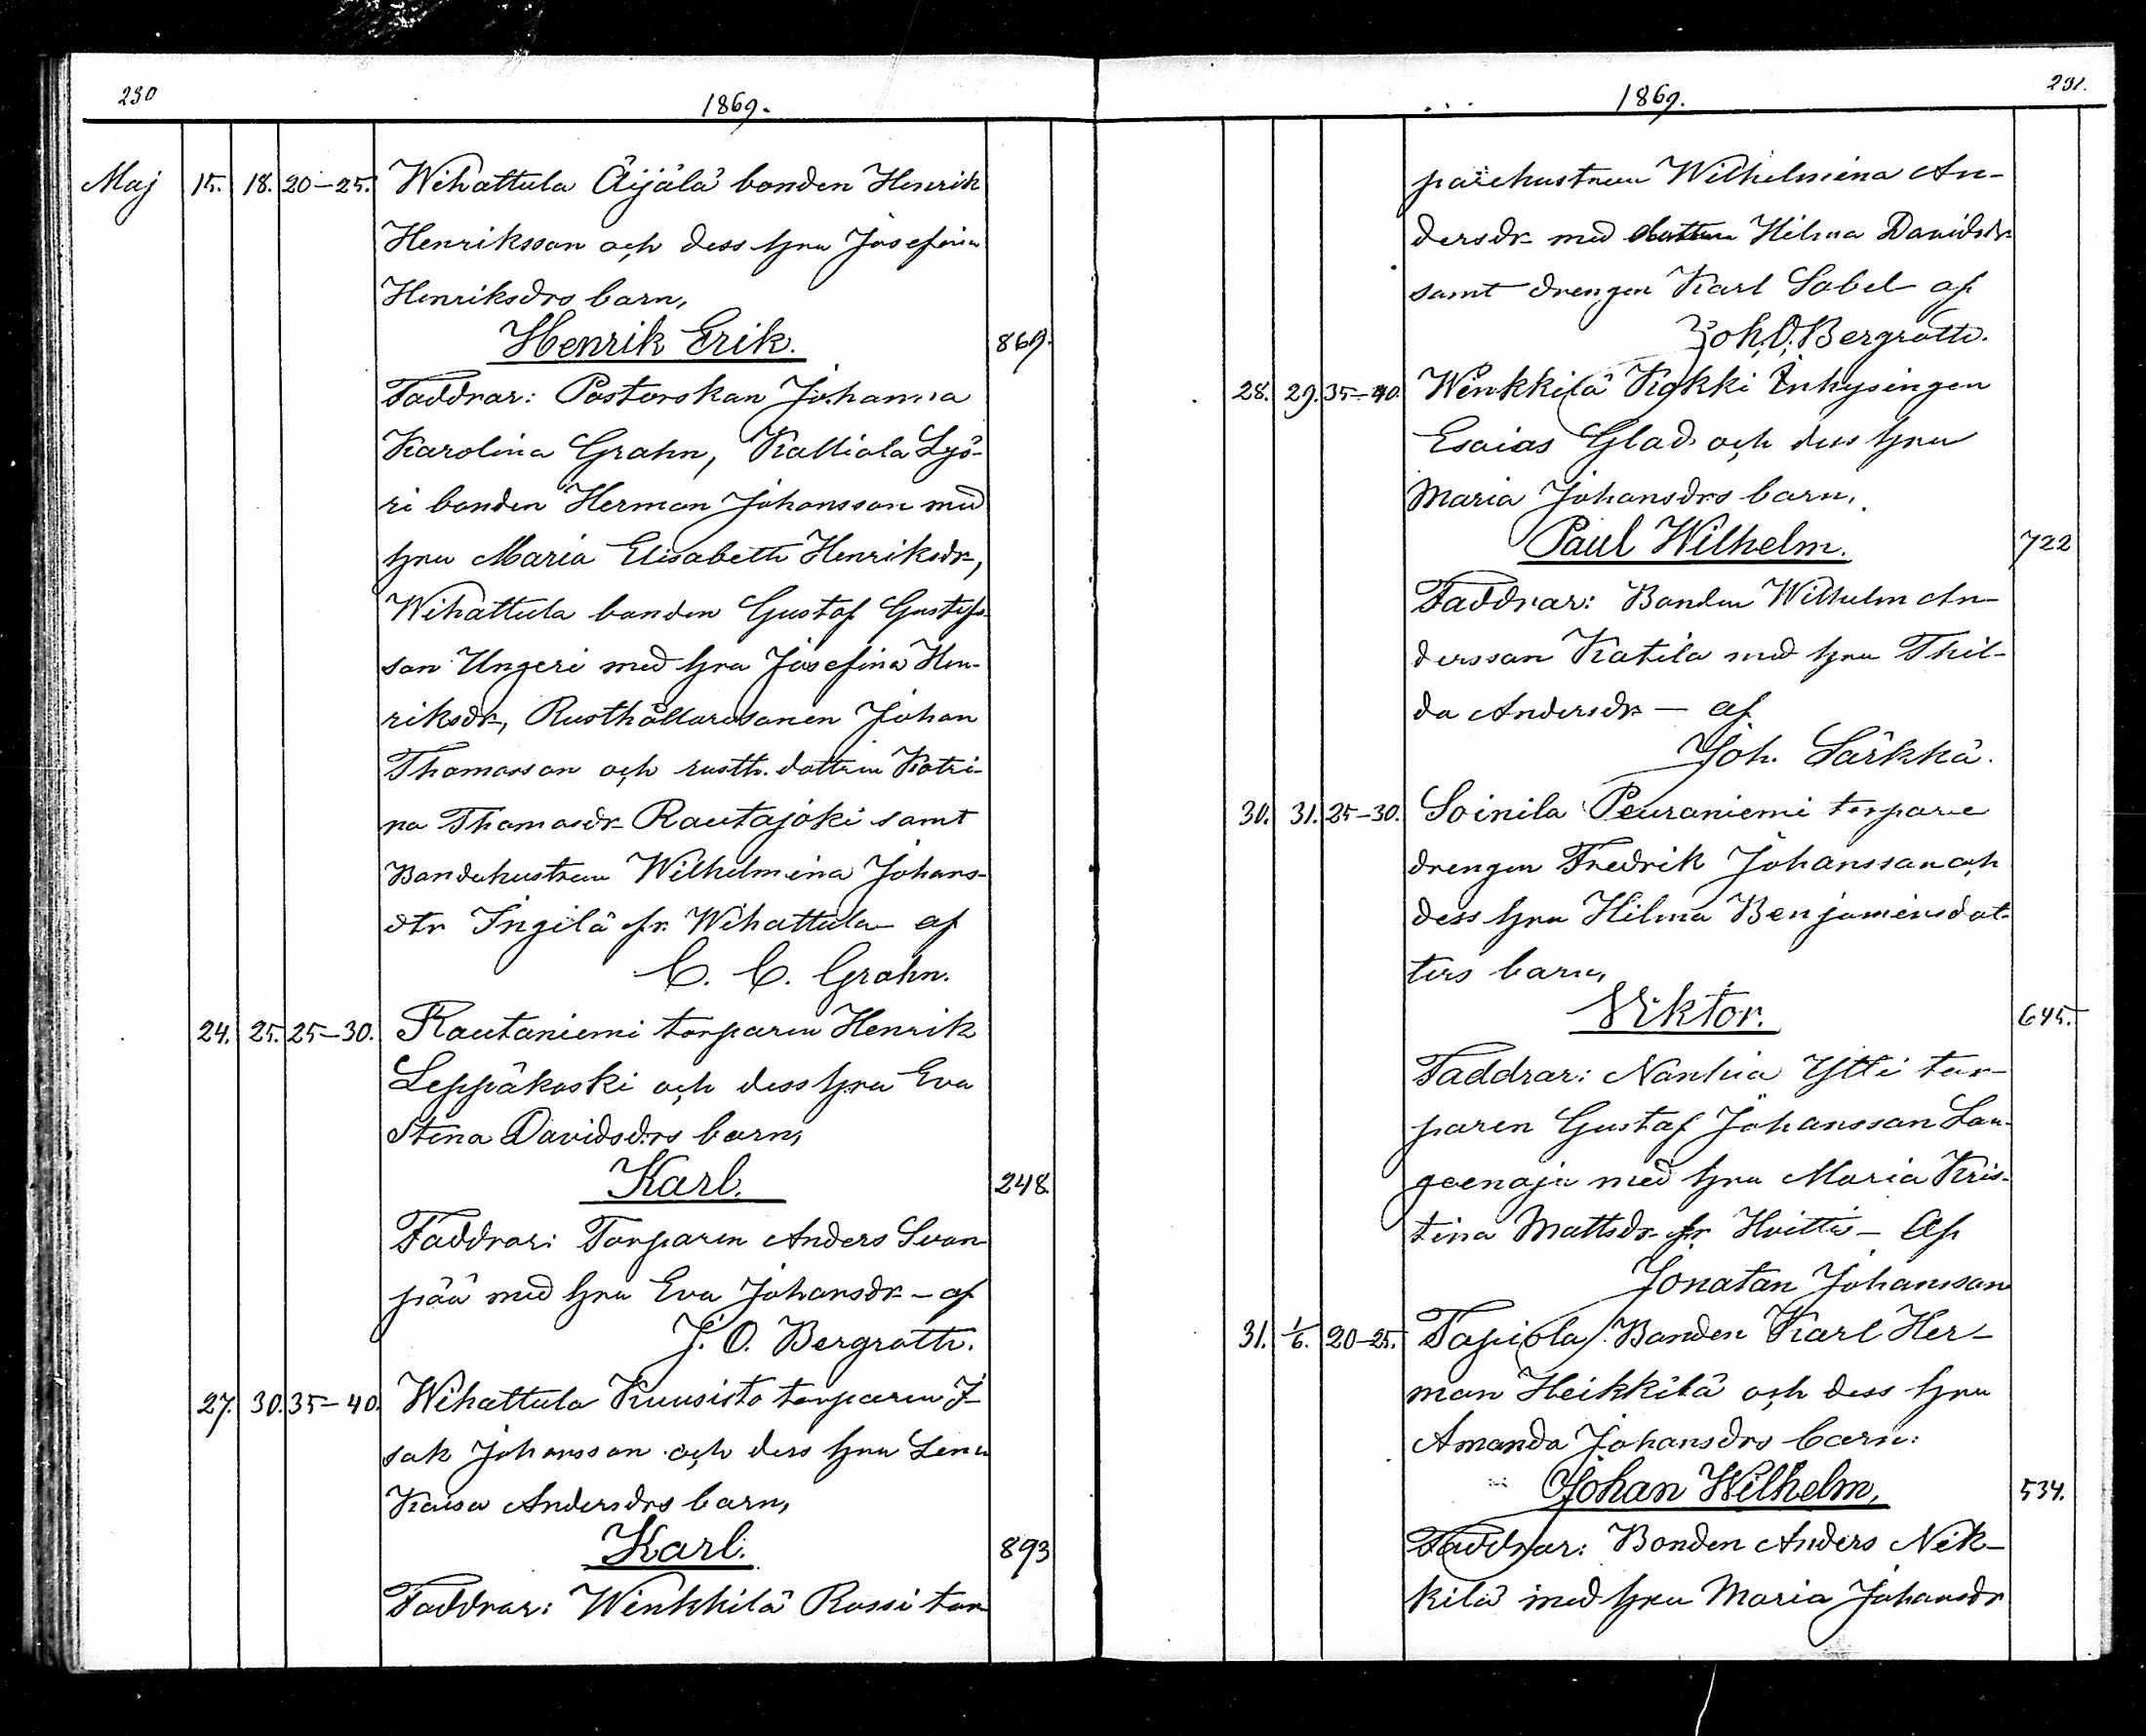 230
1869.
Maj 15. 18. 20-25. Wihattula Äijälä bonden Henrik
Henriksson och dess hru Josefina
Henriksdrs barn,
Henrik Erik. 869.
Faddrar: Pastorskan Johanna
Karolina Grahn, Kalliala Lyö-
ri bonden Herman Johansson med
hru Maria Elisabeth Henriksdr,
Wihattula bonden Gustaf Gustafs-
son Ungeri med hru Josefina Hen-
riksdr, Rusthållaresonen Johan
Thomasson och rusth. dottren Katri-
na Thomasdr Rautajoki samt
Bondehustrun Wilhelmina Johans-
dtr Ingilä fr. Wihattula - af
C. C. Grahn.
24. 25. 25-30. Rautaniemi torparen Henrik
Leppäkoski och dess hru Eva
Stina Davidsdrs barn,
Karl. 248
Faddrar: Torparen Anders Suon-
pää med hru Eva Johansdr - af
J. O. Bergroth.
27. 30. 35-40. Wihattula Kuusisto torparen I-
sak Johansson och dess hru Lena
Kaisa Andersdrs barn,
Karl. 893
Faddrar: Winkkilä Rossi tor-
231.
1869.
parehustrun Wilhelmina An-
dersdr med dottren Hilma Davidsdr
samt drengen Karl Sabel af
Joh. O. Bergroth.
28. 29. 35-40. Winkkilä Kokki Inhysingen
Esaias Glad och dess hru
Maria Johansdrs barn,
Paul Wilhelm. 722
Faddrar: Bonden Wilhelm An-
dersson Katila med hru Thil-
da Andersdr - af
Joh. Särkkä.
30. 31. 25-30. Soinila Peuraniemi torpare
drengen Fredrik Johansson och
dess hru Hilma Benjaminsdot-
ters barn,
Viktor. 645.
Faddrar: Nanhia Yltti tor-
paren Gustaf Johansson Lau-
med hru Maria Kris-
tina Mattsdr fr Huittis - Af
Jonatan Johansson
31. 1/6. 20-25. Tapiola, Bonden Karl Her-
man Heikkilä och dess hru
Amanda Johansdrs barn:
Johan Wilhelm, 534.
Faddrar: Bonden Anders Nik-
kilä med hru Maria Johansdr